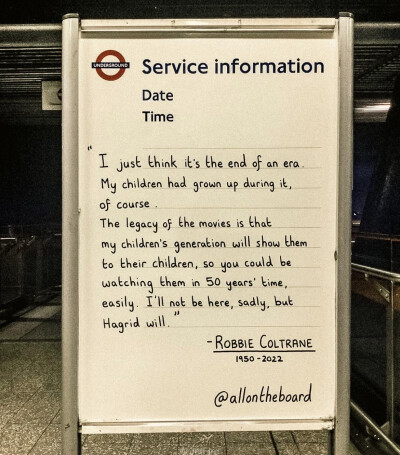 UNDERGROUND
Service information
Date
Time
"I just think it's the end of an era.
My children had grown up during it,
of course.
The legacy of the movies is that
my children's generation will show them
to their children, so you could be
watching them in 50 years' time,
easily. I'll not be here, sadly, but
Hagrid will."
-ROBBIE COLTRANE
1950-2022
@allontheboard